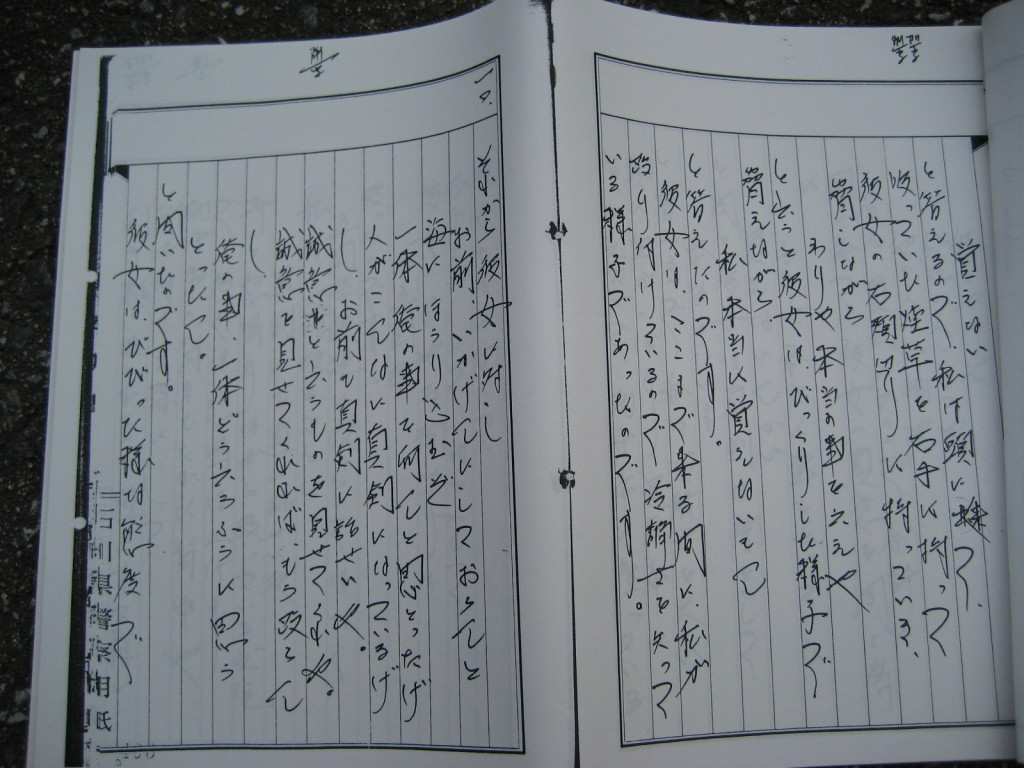 覚えない
と答えるので、私は頭に来て、
吸っていた煙草を右手に持って
彼女の右肩辺りに持っていき、
脅しながら
わりゃ本当の事を云えや
と云うと彼女は、びっくりした様子で
脅えながら
私、本当に覚えないて
と答えたのです。
彼女は、ここまで来る間に、私が
殴り付けているので冷静さを失って
いる様子であったのです。
一〇、
それから彼女に対し
お前、いかげんにしておらんと
海にほうり込むぞ
一体俺の事を何んと思とったげ
人がこんなに真剣になっているげ
し、お前も真剣に話せいや。
誠意と云うものを見せてくれや。
誠意を見せてくれれば、もう殴らん
し
俺の事、一体どう云うふうに思う
とったんて。
と聞いたのです。
彼女は、びびった様な態度で
石川県警察用紙